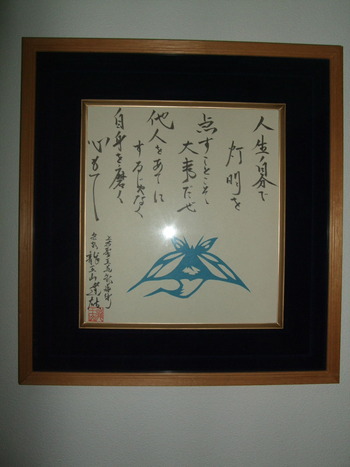 人生自分で
灯明を
点すことこそ
大事だぜ
他人をあてに
するじゃなく
自身を磨く
心もて